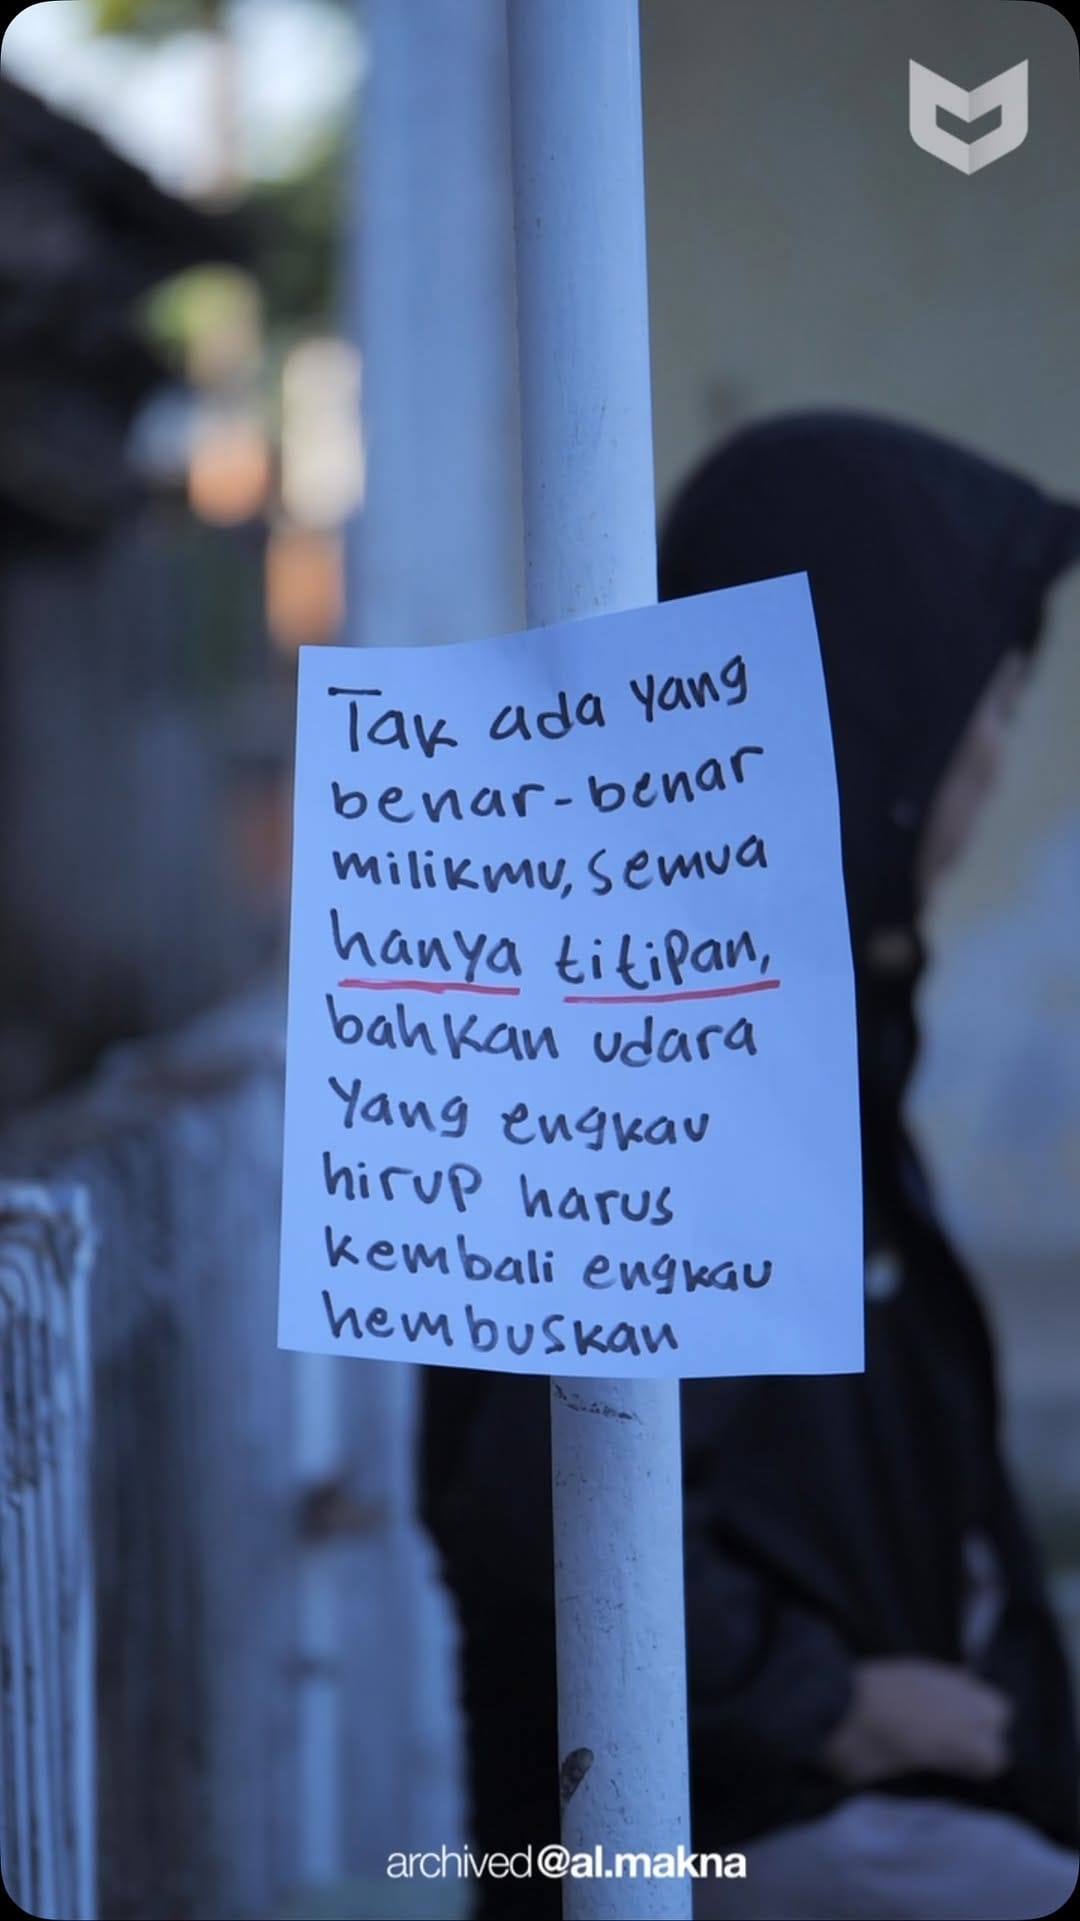 Tak ada yang
benar-benar
milikmu, semua
hanya titipan,
bahkan udara
Yang engkau
hirup harus
kembali engkau
hembuskan
archived@al.makna